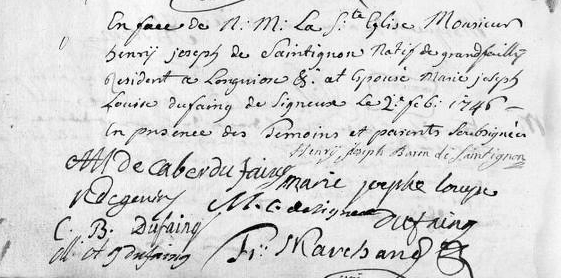 En face de N: M: La S:te Eglise Monsieur
henrij joseph de Saintignon Natif de grandfailly
Resident a Longuion &: at Epousé Marie joseph
Louise dufaing de Signeux Le 2e feb: 1746 –
En presence des Temoins et parents Soubsignés
Henrij Joseph Baron de Saintignon
De Caber du faing
marie josephe louise
dufaing
C. B. Dufaing
dufaing
Fr: Marchand